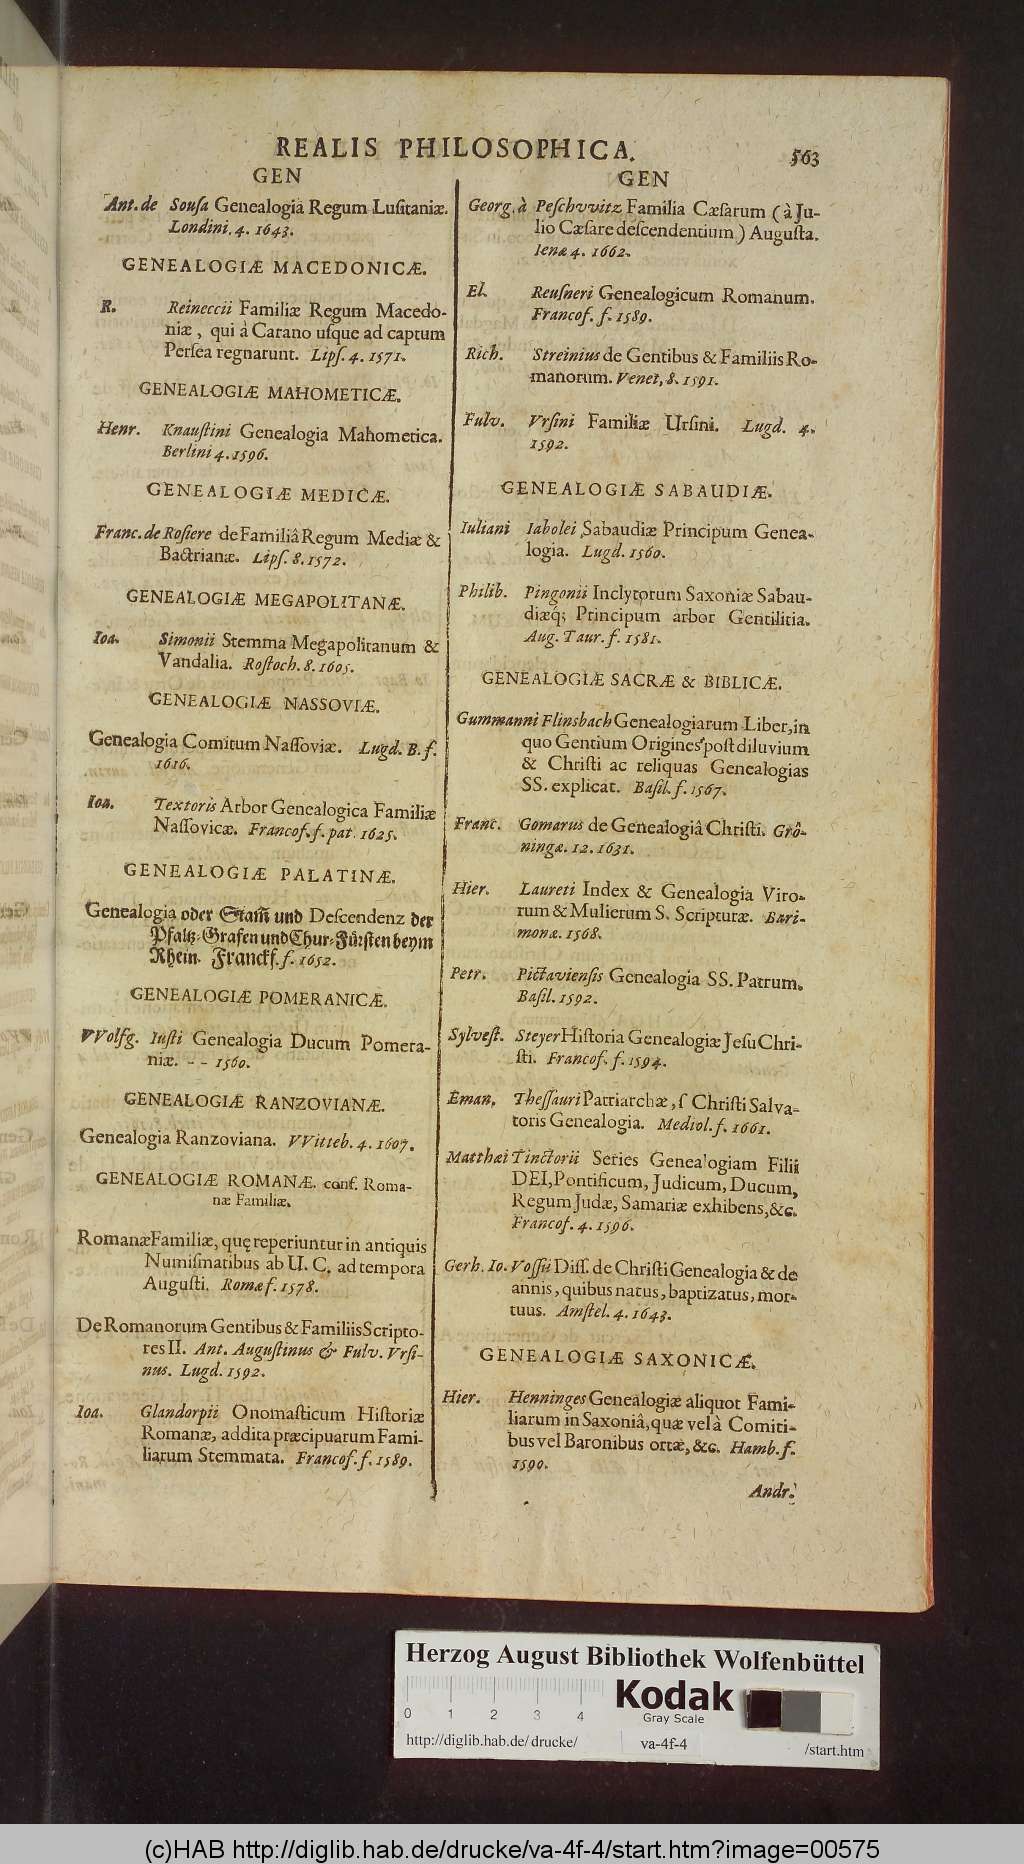 REALIS PHILOSOPHICA.
563
GEN
Ant. de Sousa Genealogia Regum Lusitaniæ.
Londini. 4. 1643.
GENEALOGIÆ MACEDONICÆ.
R. Reineccii Familiæ Regum Macedo-
niæ, qui à Carano usque ad captum
Persea regnarunt. Lips. 4. 1571.
GENEALOGIÆ MAHOMETICÆ.
Henr. Knaustini Genealogia Mahometica.
Berlini 4. 1596.
GENEALOGIÆ MEDICÆ.
Franc. de Rosiere de Familiâ Regum Mediæ &
Bactrianæ. Lips. 8. 1572.
GENEALOGIÆ MEGAPOLITANÆ.
Ioa. Simonii Stemma Megapolitanum &
Vandalia. Rostoch. 8. 1605.
GENEALOGIÆ NASSOVIÆ.
Genealogia Comitum Nassoviæ. Lugd. B. f.
1616.
Ioa. Textoris Arbor Genealogica Familiæ
Nassovicæ. Francof. f. pat. 1625.
GENEALOGIÆ PALATINÆ.
Genealogia oder Stam̃ und Descendenz der
Pfaltz-Grafen und Chur-Fürsten beym
Rhein. Franckf. f. 1652.
GENEALOGIÆ POMERANICÆ.
VVolfg. Iusti Genealogia Ducum Pomera-
niæ. - - 1560.
GENEALOGIÆ RANZOVIANÆ.
Genealogia Ranzoviana. VVitteb. 4. 1607.
GENEALOGIÆ ROMANÆ. conf. Roma-
næ Familiæ.
Romanæ Familiæ, quę reperiuntur in antiquis
Numismatibus ab U. C. ad tempora
Augusti. Romæ f. 1578.
De Romanorum Gentibus & Familiis Scripto-
res II. Ant. Augustinus & Fulv. Vrsi-
nus. Lugd. 1592.
Ioa. Glandorpii Onomasticum Historiæ
Romanæ, addita præcipuarum Fami-
liarum Stemmata. Francof. f. 1589.
GEN
Georg. à Peschvvitz Familia Cæsarum (à Ju-
lio Cæsare descendentium) Augusta.
Ienæ 4. 1662.
El. Reusneri Genealogicum Romanum.
Francof. f. 1589.
Rich. Streinius de Gentibus & Familiis Ro-
manorum. Venet, 8. 1591.
Fulv. Vrsini Familiæ Ursini. Lugd. 4.
1592.
GENEALOGIÆ SABAUDIÆ.
Iuliani Iabolei Sabaudiæ Principum Genea-
logia. Lugd. 1560.
Philib. Pingonii Inclytorum Saxoniæ Sabau-
diæq; Principum arbor Gentilitia.
Aug. Taur. f. 1581.
GENEALOGIÆ SACRÆ & BIBLICÆ.
Gummanni Flinsbach Genealogiarum Liber, in
quo Gentium Origines post diluvium
& Christi ac reliquas Genealogias
SS. explicat. Basil. f. 1567.
Franc. Gomarus de Genealogiâ Christi. Grö-
ningæ. 12. 1631.
Hier. Laureti Index & Genealogia Viro-
rum & Mulierum S. Scripturæ. Bari-
monæ. 1568.
Petr. Pictaviensis Genealogia SS. Patrum.
Basil. 1592.
Sylvest. Steyer Historia Genealogiæ Jesu Chri-
sti. Francof. f. 1594.
Eman. Thessauri Patriarchæ, s Christi Salva-
toris Genealogia. Mediol. f. 1661.
Matthæi Tinctorii Series Genealogiam Filii
DEI, Pontificum, Judicum, Ducum,
Regum Judæ, Samariæ exhibens, &c.
Francof. 4. 1596.
Gerh. Io. Vossii Diss. de Christi Genealogia & de
annis, quibus natus, baptizatus, mor-
tuus. Amstel. 4. 1643.
GENEALOGIÆ SAXONICÆ.
Hier. Henninges Genealogiæ aliquot Fami-
liarum in Saxoniâ, quæ vel à Comiti-
bus vel Baronibus ortæ, &c. Hamb. f.
1590.
Andr.
Herzog August Bibliothek Wolfenbüttel
0 1 2 3 4
Kodak
Gray Scale
http://diglib.hab.de/drucke/ va-4f-4 /start.htm
(c)HAB http://diglib.hab.de/drucke/va-4f-4/start.htm?image=00575